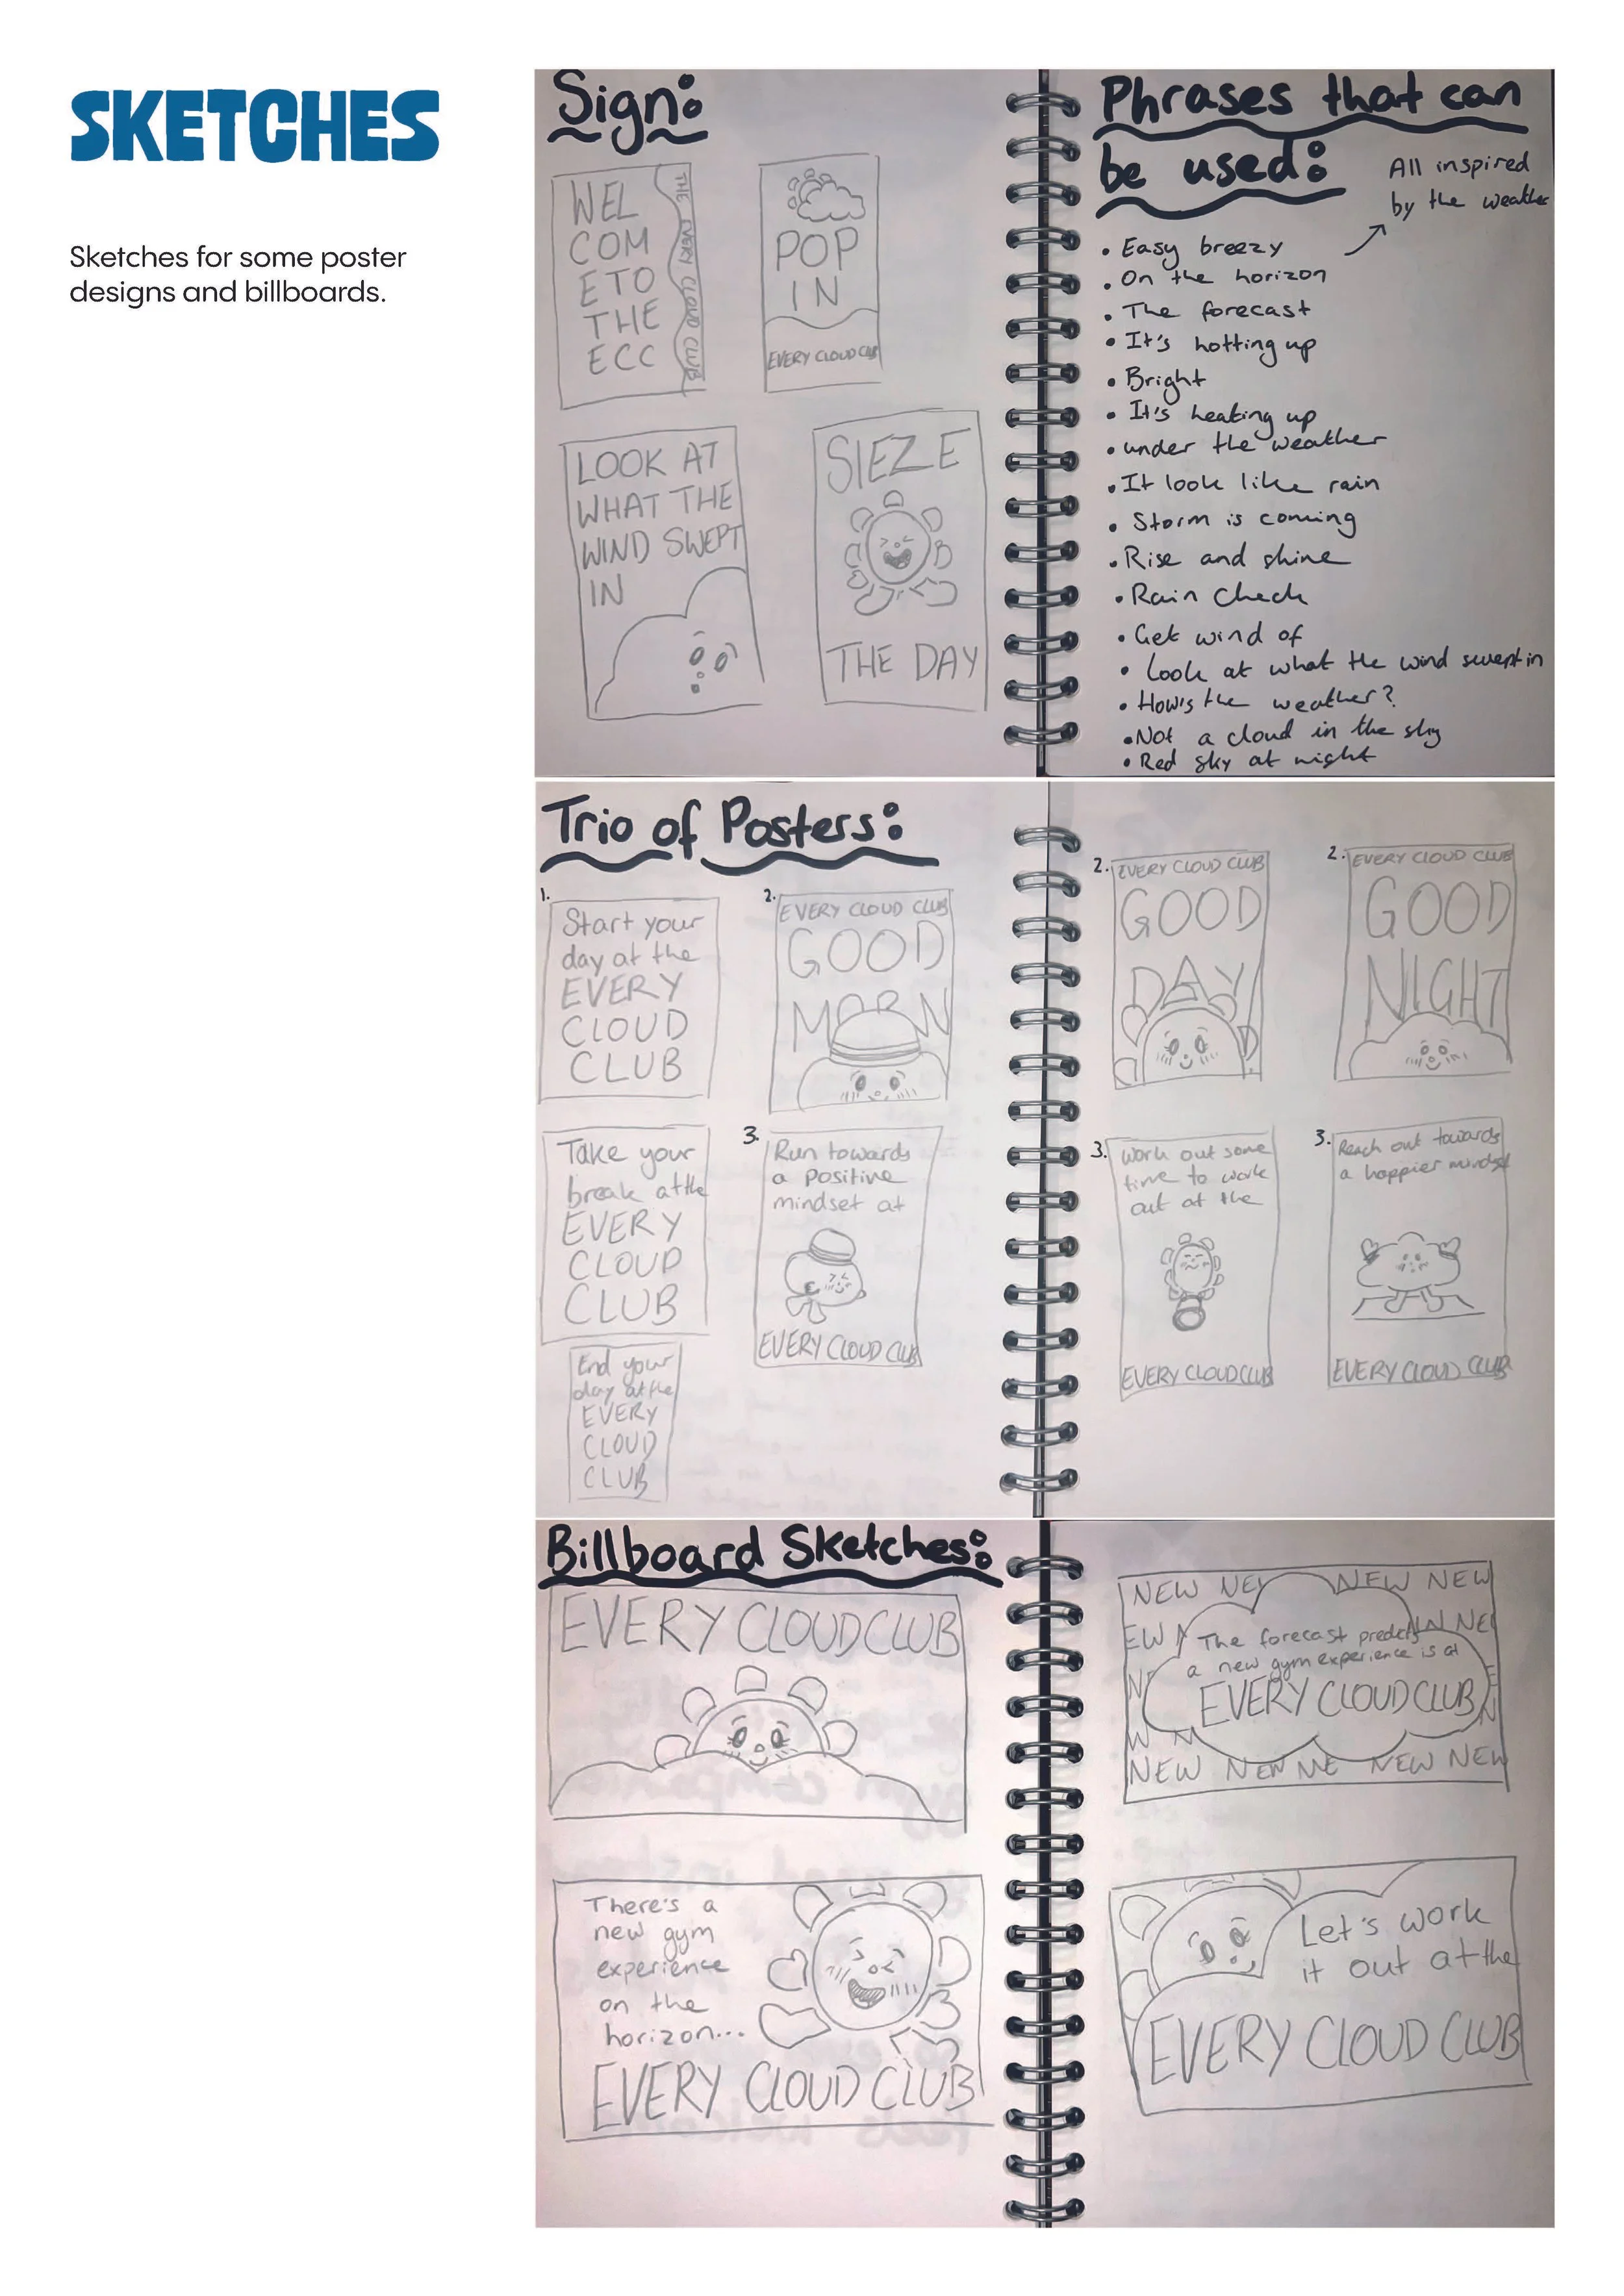 SKETCHES
Sketches for some poster
designs and billboards.
Sign:
WEL
COM
ETO
THE
ECC
THE EVERY CLOUD CLUB
POP
IN
EVERY CLOUD CLUB
LOOK AT
WHAT THE
WIND SWEPT
IN
SIEZE
THE DAY
Phrases that can
be used:
All inspired
by the weather
• Easy breezy
• On the horizon
• The forecast
• It's hotting up
• Bright
• It's heating up
• under the weather
• It look like rain
• Storm is coming
• Rise and shine
• Rain check
• Get wind of
• Look at what the wind swept in
• How's the weather?
• Not a cloud in the sky
• Red sky at night
Trio of Posters:
1.
Start your
day at the
EVERY
CLOUD
CLUB
2.
EVERY CLOUD CLUB
GOOD
MORN
2.
EVERY CLOUD CLUB
GOOD
DAY
2.
EVERY CLOUD CLUB
GOOD
NIGHT
Take your
break at the
EVERY
CLOUD
CLUB
3.
Run towards
a positive
mindset at
EVERY CLOUD CLUB
3.
Work out some
time to work
out at the
EVERY CLOUD CLUB
3.
Reach out towards
a happier mindset
EVERY CLOUD CLUB
End your
day at the
EVERY
CLOUD
CLUB
Billboard Sketches:
EVERY CLOUD CLUB
NEW NE NEW NEW
EW N W NE
The forecast predicts
a new gym experience is at
EVERY CLOUD CLUB
NEW NEW NE NEW NEW
There's a
new gym
experience
on the
horizon...
EVERY CLOUD CLUB
Let's work
it out at the
EVERY CLOUD CLUB